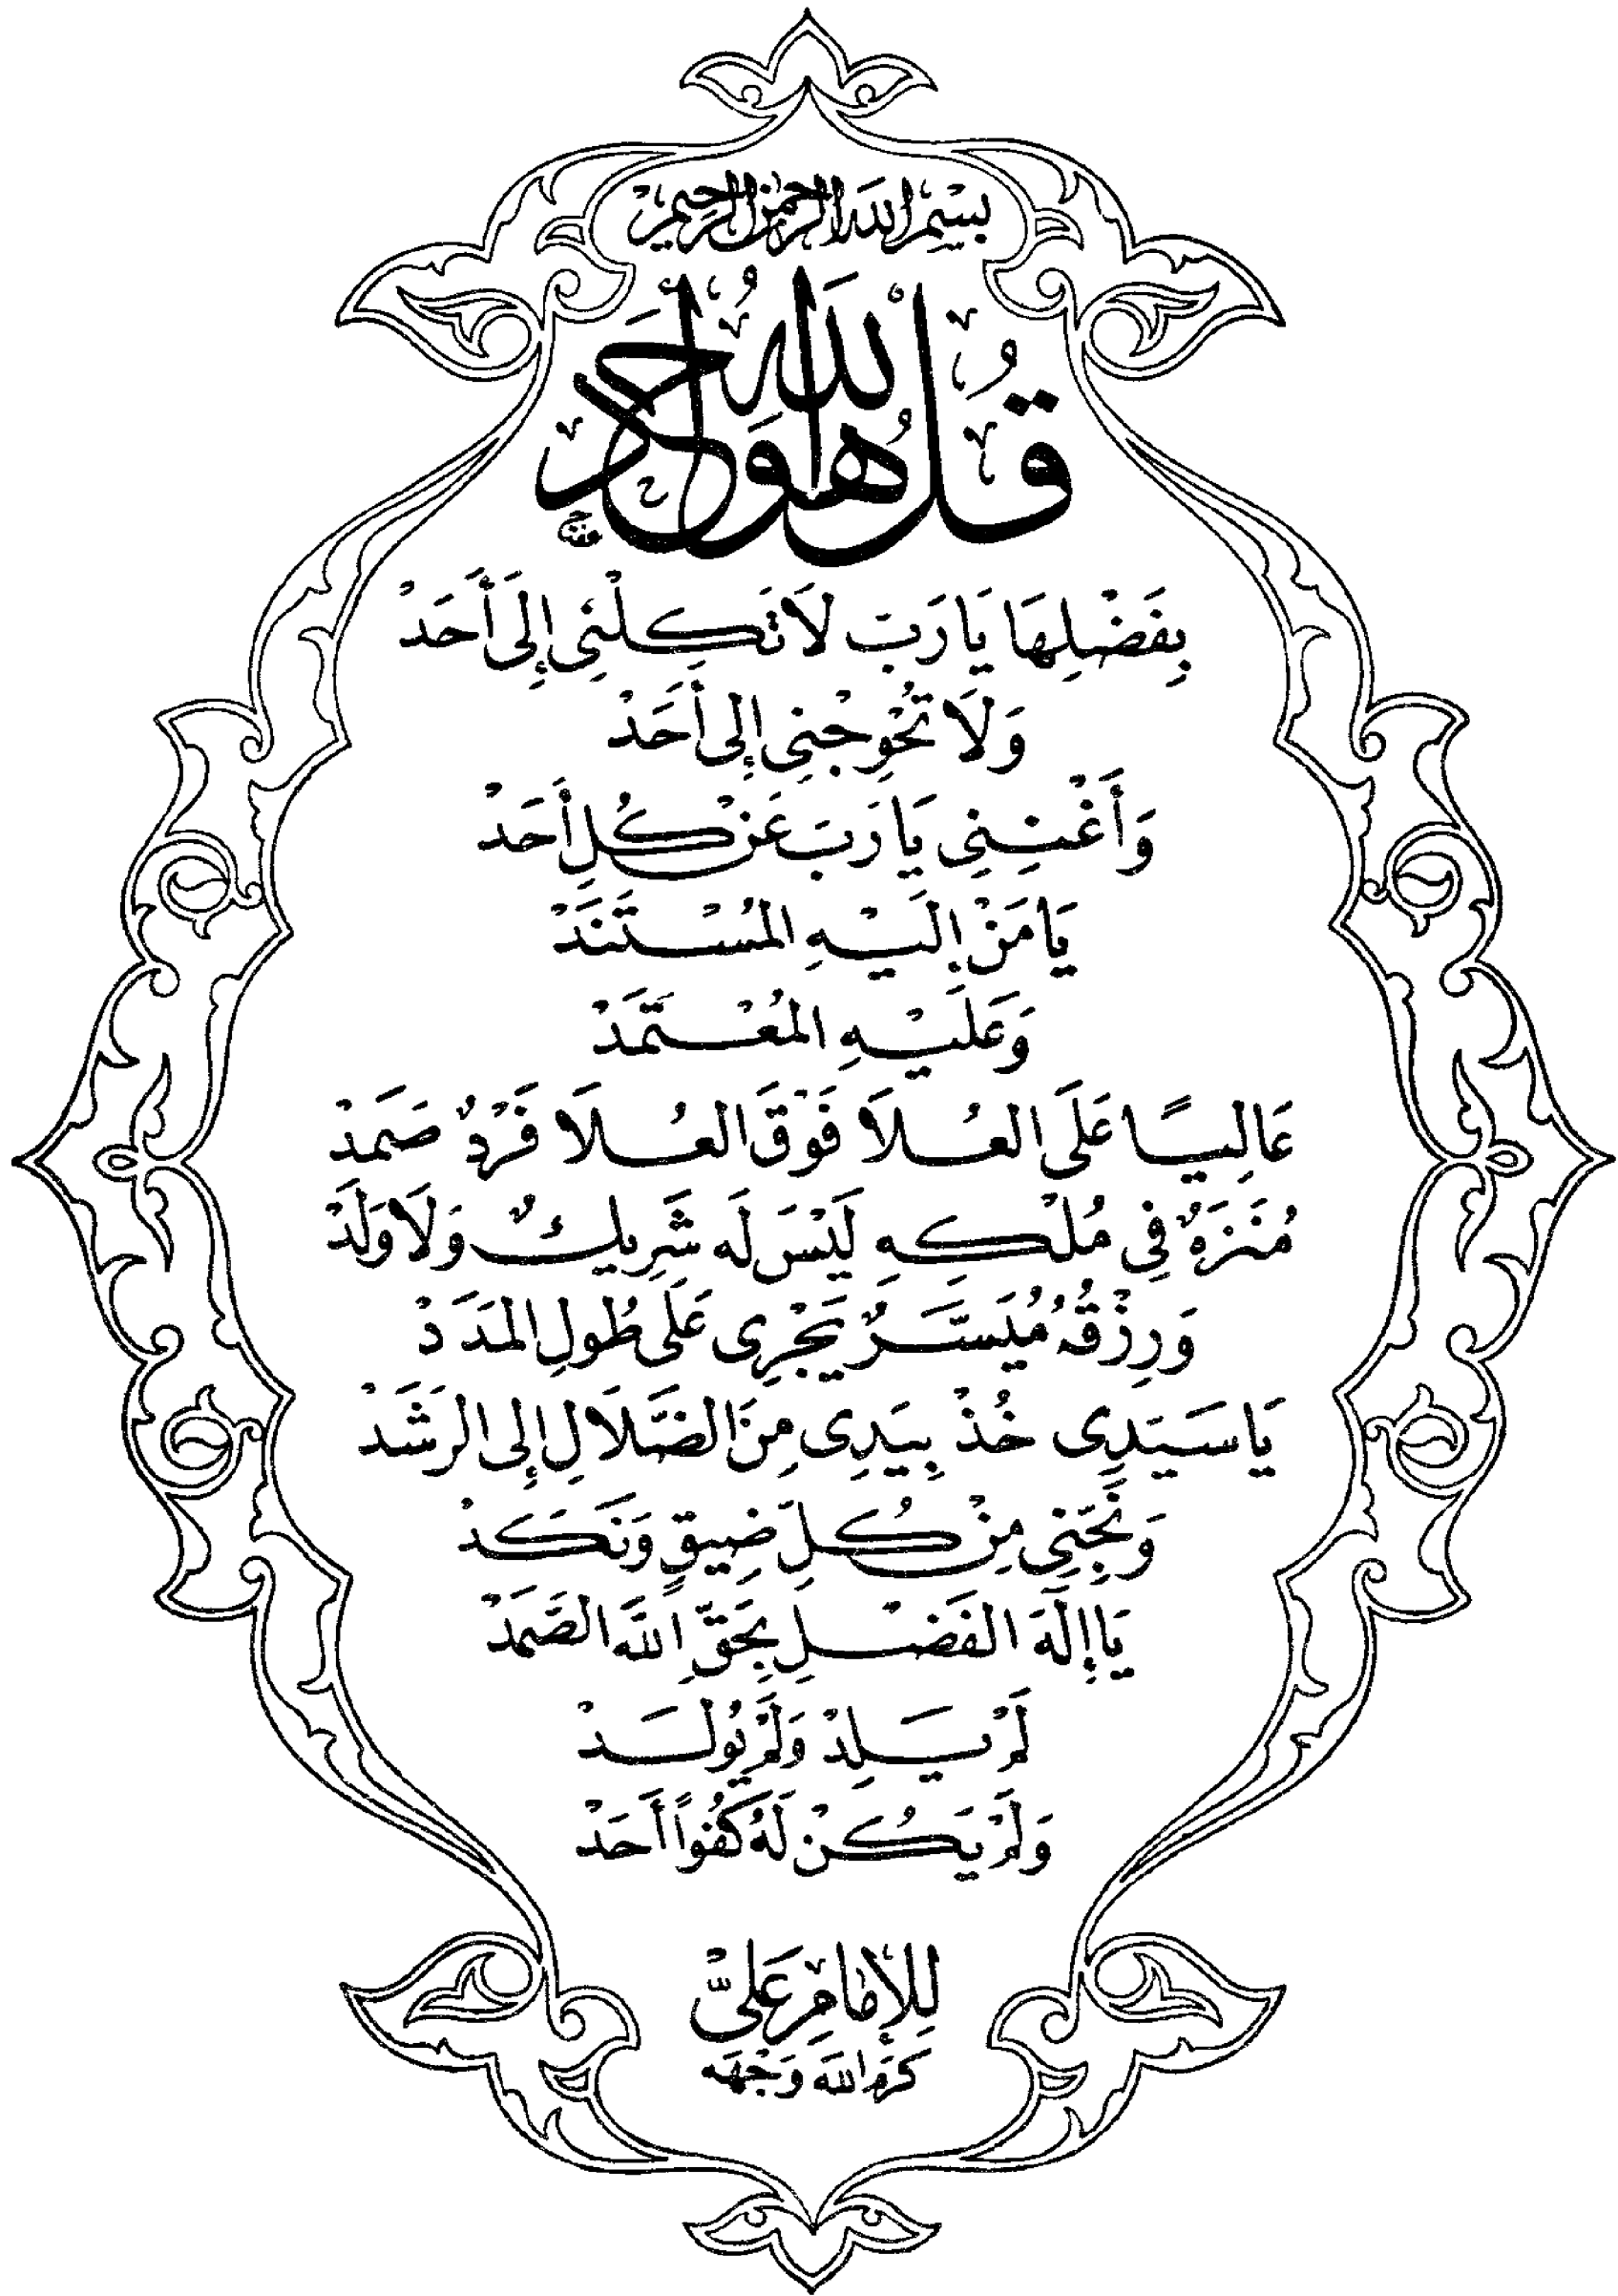 بِسْمِ اللَّهِ الرَّحْمَنِ الرَّحِيمِ
قُلْ هُوَ اللَّهُ أَحَدْ
بِفَضْلِهَا يَا رَبَ لَا تَكِلْنِي إِلَى أَحَدْ
وَلَا تُحْوِجْنِي إِلَى أَحَدْ
وَأَغْنِنِي يَا رَبَ عَنْ كُلِ أَحَدْ
يَا مَنْ إِلَيْهِ المُسْتَنَدْ
وَعَلَيْهِ المُعْتَمَدْ
عَالِيًا عَلَى العُلَا فَوْقَ العُلَا فَرْدٌ صَمَدْ
مُنَزَهٌ فِي مُلْكِهِ لَيْسَ لَه شَرِيكٌ وَلَا وَلَدْ
وَرِزْقُهُ مُيَسَّرٌ يَجْرِى عَلَى طُولِ المَدَدْ
يَا سَيَدِى خُذْ بِيَدِى مِنَ الضَّلَالِ إِلى الرَشَدْ
وَنَجِّنِي مِنْ كُلِ ضِيقٍ وَنَكَدْ
يَا إِلَهَ الفَضْلِ بِحَقِّ اللَّه الصَّمَدْ
لَمْ يَلِدْ وَلَمْ يُولَدْ
وَلَمْ يَكُنْ لَهُ كُفُواً أَحَدْ
لِلإِمَامِ عَلِيٍّ
كَرَمَ اللَّه وَجْهَه